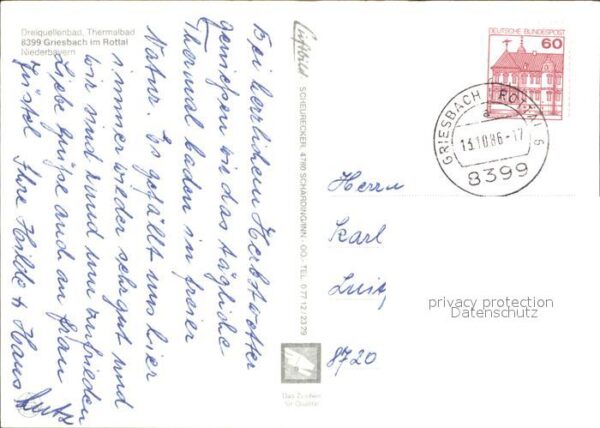 Dreiquellenbad, Thermalbad
8399 Griesbach im Rottal
Niederbayern
Bei herrlichem Herbstwetter
genießen wir das tägliche
Thermalbaden in freier
Natur. Es gefällt uns hier
immer wieder sehr gut und
wir sind rund um zufrieden
Liebe Grüße auch an Frau
Ihre Hilde + Hans
Luftbild
SCHEURECKER, 4780 SCHÄRDING/INN - OÖ. - TEL. 0 77 12 / 23 79
Das Zeichen
für Qualität
DEUTSCHE BUNDESPOST
60
GRIESBACH I ROTTAL
a
13.10.86-17
8399
Herrn
Karl
8720
privacy protection
Datenschutz